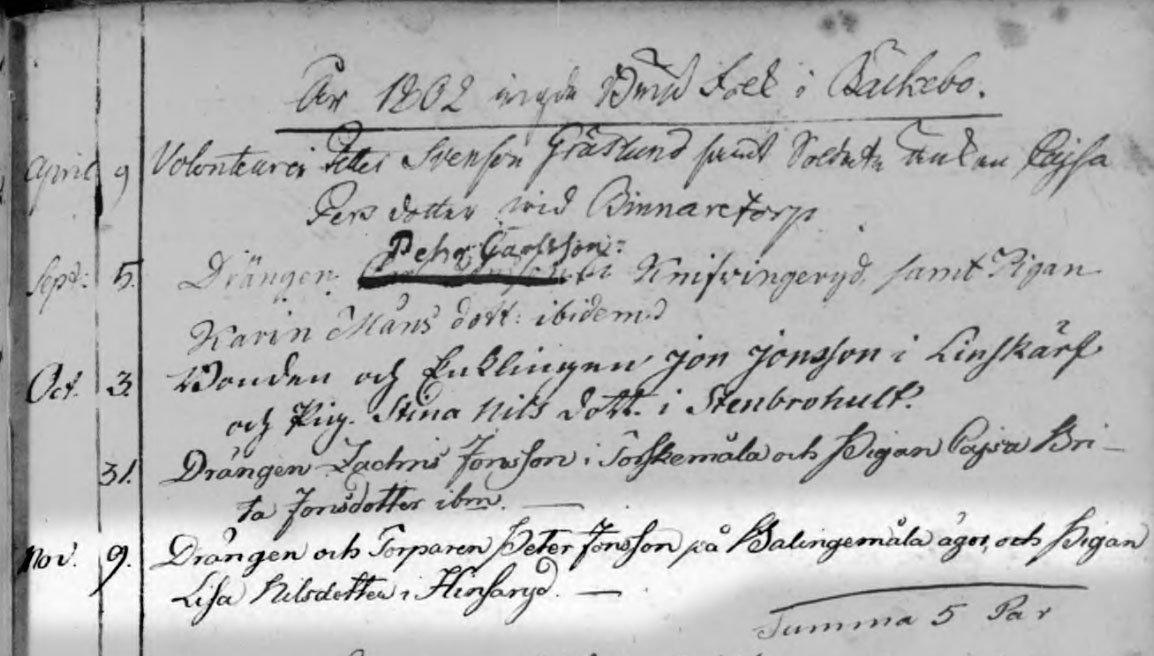 År 1802 wigde Brud Folk i Bäckebo.
April 9 Volonteuren Petter Svenson Gräslund samt Soldate Enkan Cajsa
Pers dotter wid Binnaretorp
Sept: 5. Drängen Pehr Carlsson: i Knifvingeryd, samt Pigan
Karin Måns dott: ibidem
Oct. 3. Bonden och Enklingen Jon Jonsson i Linskärf
och Pig. Stina Nils dott. i Stenbrohult.
31. Drängen Zachris Jonsson i Torskemåla och Pigan Cajsa Bri-
ta Jonsdotter ibm. —
Nov. 9. Drängen och Torparen Peter Jonsson på Balingemåla ägor, och Pigan
Lisa Nilsdotter i Hinsaryd. —
Summa 5 Par